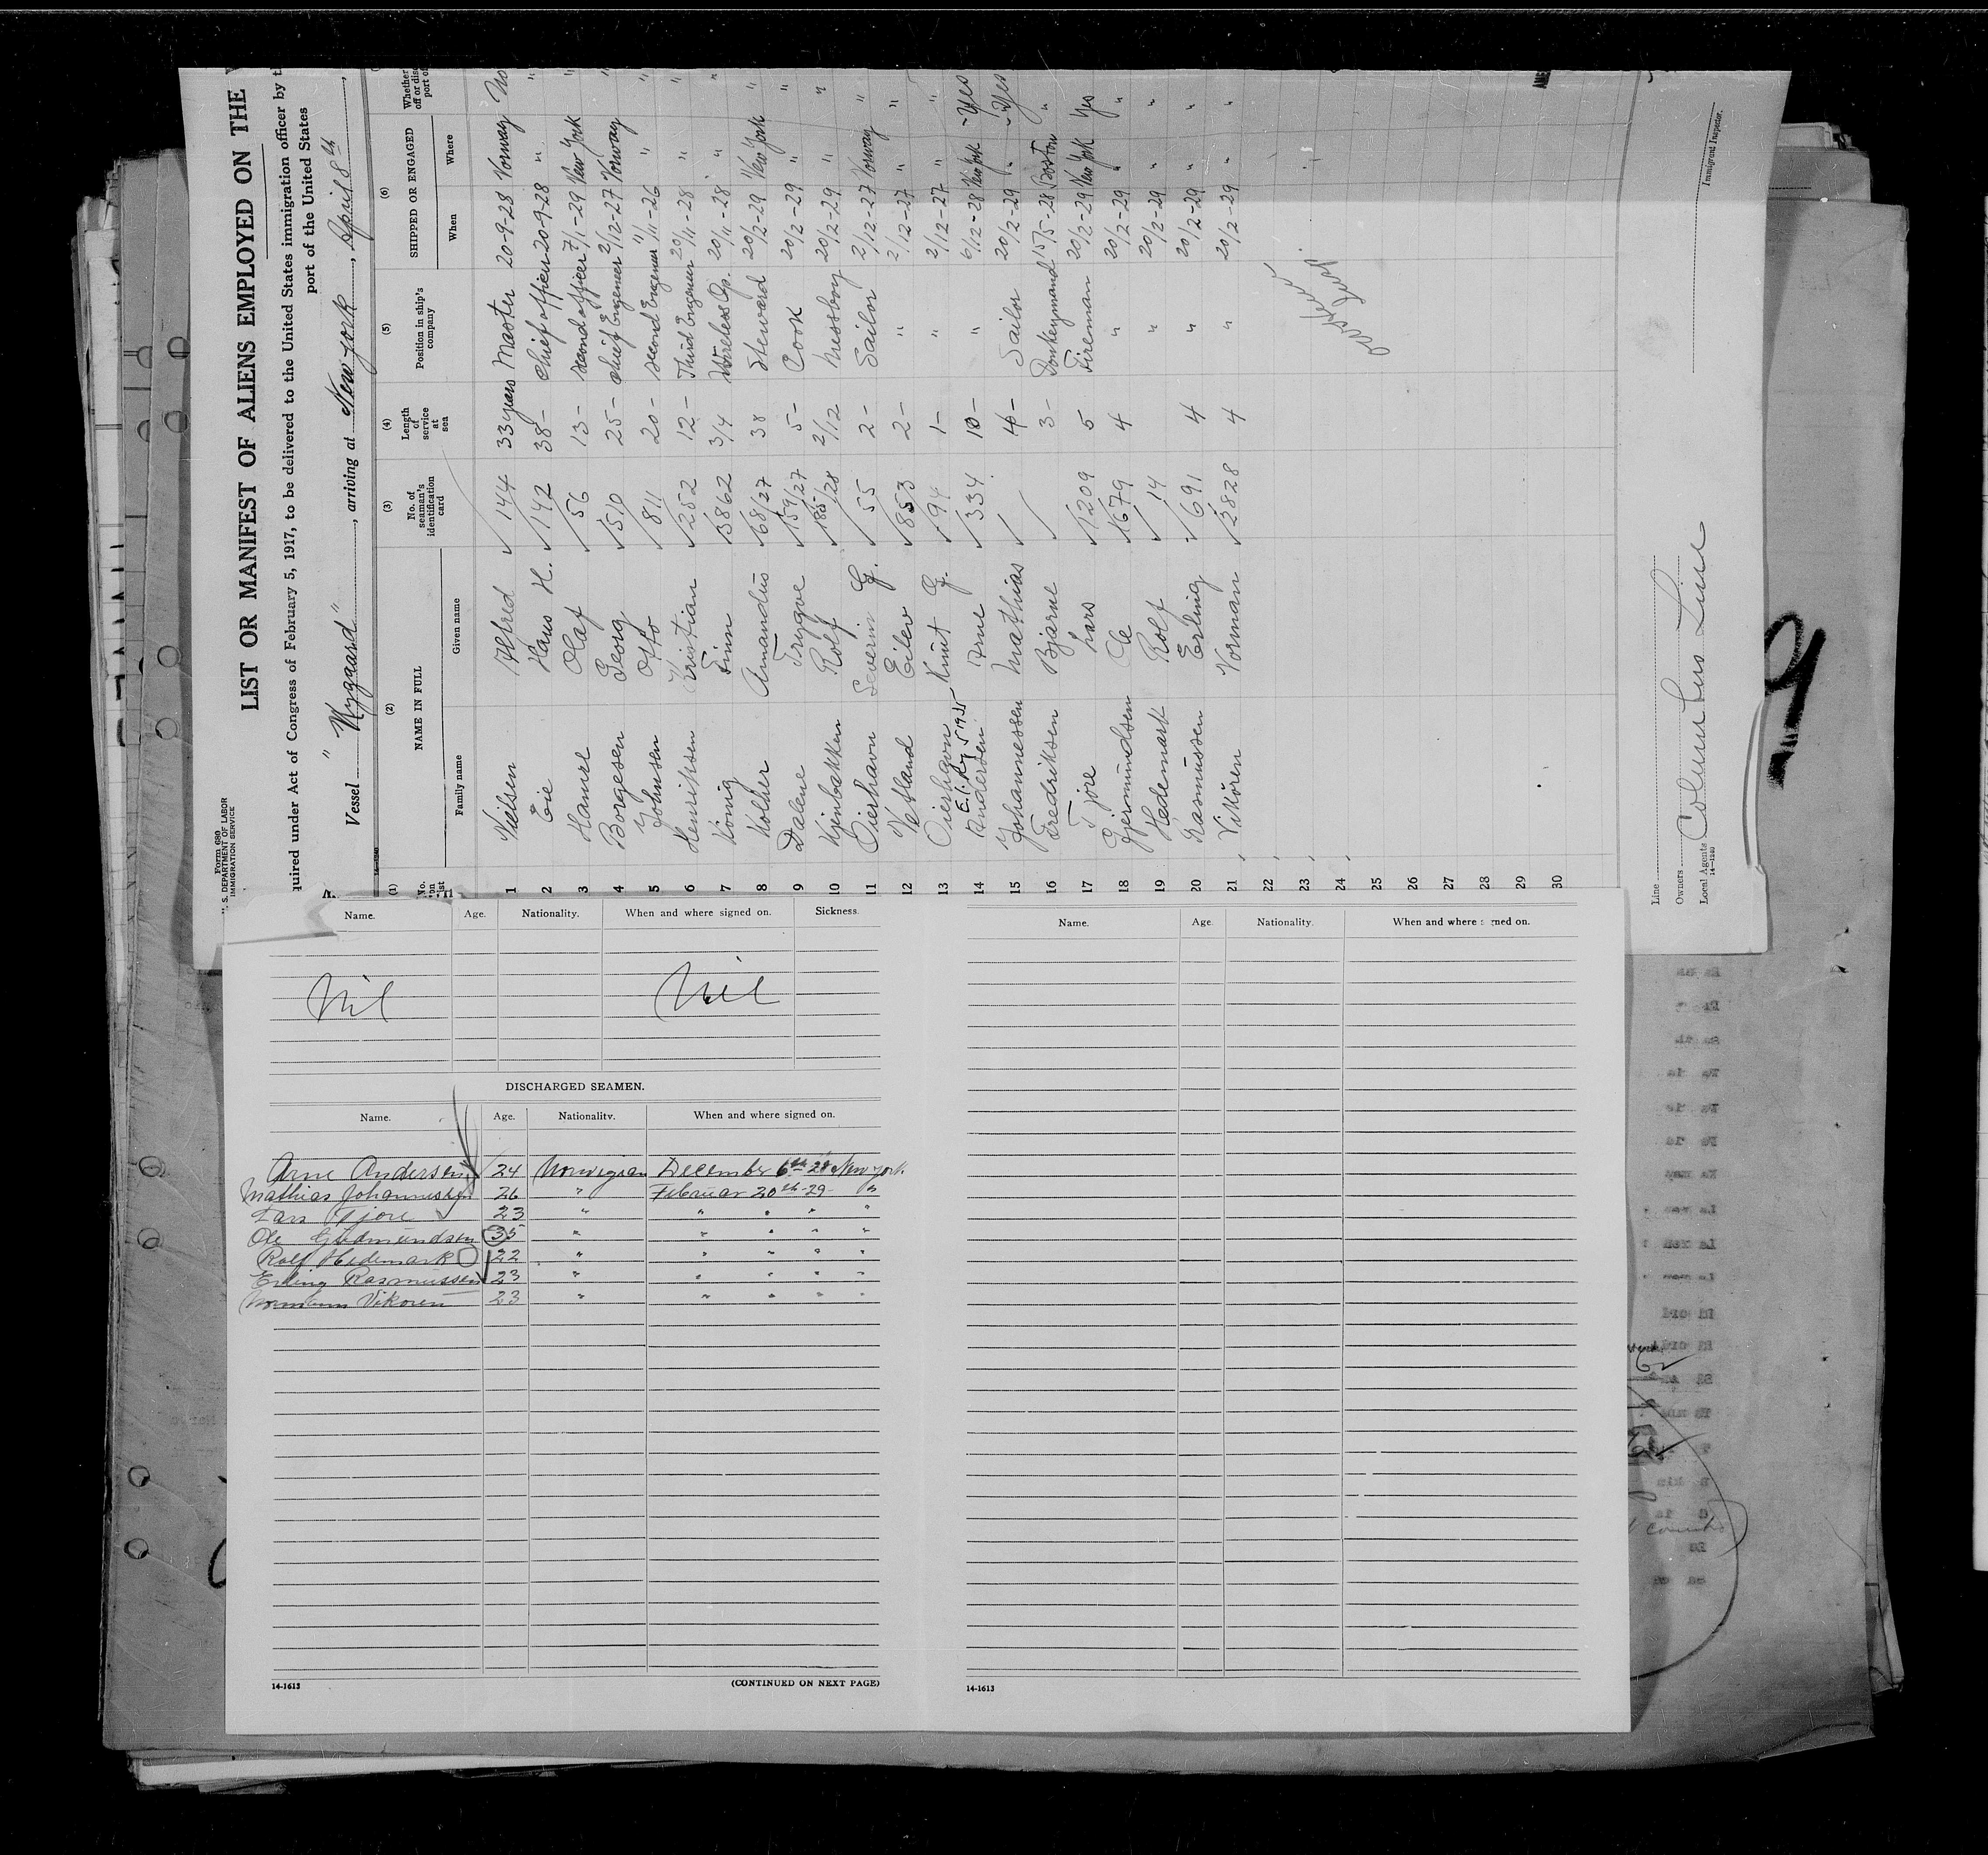 Form 680
U. S. DEPARTMENT OF LABOR
IMMIGRATION SERVICE
LIST OR MANIFEST OF ALIENS EMPLOYED ON THE
quired under Act of Congress of February 5, 1917, to be delivered to the United States immigration officer by th
port of the United States
Vessel "Nygaard", arriving at New York, April 8th,
14-1240
(1) (2) (3) (4) (5) (6)
No. on list NAME IN FULL No. of seaman's identification card Length of service at sea Position in ship's company SHIPPED OR ENGAGED Whether
off or disc
port of
Family name Given name When Where
1 Nielsen Alfred 144 33 years Master 20-9-28 Norway No
2 Eie Hans H. 142 38- Chief officer 20-9-28 " "
3 Haure Olaf 56 13- Second officer 7/1-29 New York "
4 Borgesen Georg 510 25- Chief Engeneer 2/12-27 Norway "
5 Johnsen Otto 811 20- Second Engeneer 11/11-26 " "
6 Henriksen Kristian 252 12- Third Engeneer 20/11-28 " "
7 König Finn 3862 3/4 Wireless Op. 20/11-28 " "
8 Kolher Amandus 68/27 38 Steward 20/2-29 New York "
9 Dalene Trygve 159/27 5- Cook 20/2-29 " "
10 Kjenbakken Rolf 185/28 2/12 Messboy 20/2-29 " "
11 Oierhavn Severin G. 55 2- Sailor 2/12-27 Norway "
12 Vetland Eilev 853 2- " 2/12-27 " "
13 Oierhavn Knut G. 94 1- " 2/12-27 " "
14 Andersen Arne 334 10- " 6/12-28 New York -Yes
15 Johannessen Mathias 4- Sailor 20/2-29 " -Yes
16 Fredriksen Bjarne 3- Donkeymand 15/5-28 Boston "
17 Tjore Lars 1209 5 Fireman 20/2-29 New York Yes
18 Gjermundsen Ole 1679 4 " 20/2-29 " "
19 Hedemark Rolf 14 " 20/2-29 " "
20 Rasmussen Erling 691 4 " 20/2-29 " "
21 Vikören Norman 2828 4 " 20/2-29 " "
22
23
24
25
26
27
28
29
30
Line
Owners
Local Agents Columbus Line
14-1240
Immigrant Inspector.
Name. Age. Nationality. When and where signed on. Sickness.
Nil Nil
DISCHARGED SEAMEN.
Name. Age. Nationality. When and where signed on.
Arne Andersen 24 Norwigian December 6th 28 New York
Mathias Johannessen 26 " Februar 20th-29- "
Lars Tjore 23 " " " " "
Ole Gjedmundsen 35 " " " " "
Rolf Hedemark 22 " " " " "
Erling Rasmussen 23 " " " " "
Normann Vikoren 23 " " " " "
14-1613 (CONTINUED ON NEXT PAGE)
Name. Age. Nationality. When and where signed on.
14-1613